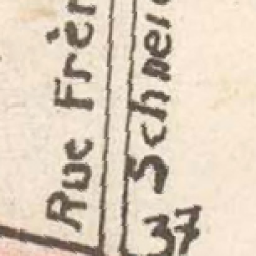 Rue Frèr
Schneid
37